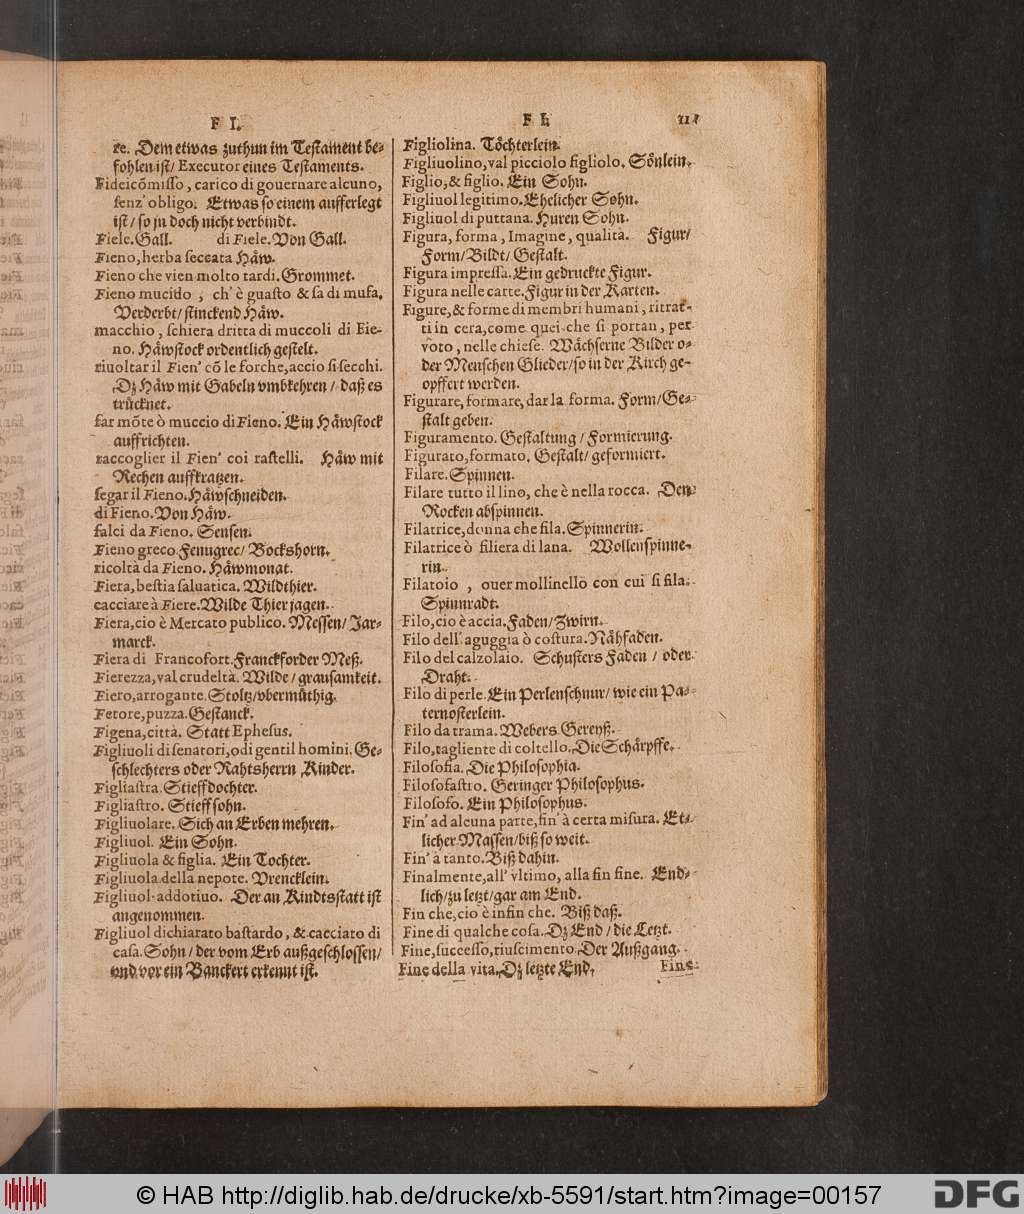 F I.
re. Dem etwas zuthun im Testament be-
fohlen ist/ Executor eines Testaments.
Fideicõmisso, carico di gouernare alcuno,
senz' obligo. Etwas so einem aufferlegt
ist/ so jn doch nicht verbindt.
Fiele. Gall. di Fiele. Von Gall.
Fieno, herba seccata Håw.
Fieno che vien molto tardi. Grommet.
Fieno mucido, ch' è guasto & sa di mufa,
Verderbt/ stinckend Håw.
macchio, schiera dritta di muccoli di Fie-
no. Håwstock ordentlich gestelt.
riuoltar il Fien' cõ le forche, accio si secchi.
Dz Håw mit Gabeln vmbkehren/ daß es
trücknet.
far mõte ò muccio di Fieno. Ein Håwstock
auffrichten.
raccoglier il Fien' coi rastelli. Håw mit
Rechen auffkratzen.
segar il Fieno. Håwschneiden.
di Fieno. Von Håw.
falci da Fieno. Sensen.
Fieno greco Fenugrec/ Bockshorn.
ricoltà da Fieno. Håwmonat.
Fiera, bestia saluatica. Wildthier.
cacciare à Fiere. Wilde Thier jagen.
Fiera, cio è Mercato publico. Messen/ Jar-
marck.
Fiera di Francofort. Franckforder Meß.
Fierezza, val crudeltà. Wilde/ grausamkeit.
Fiero, arrogante. Stoltz/ vbermůthig.
Fetore, puzza. Gestanck.
Figena, città. Statt Ephesus.
Figliuoli di senatori, o di gentil homini. Ge-
schlechters oder Rahtsherrn Kinder.
Figliastra. Stieffdochter.
Figliastro. Stieffsohn.
Figliuolare. Sich an Erben mehren.
Figliuol. Ein Sohn.
Figliuola & figlia. Ein Tochter.
Figliuola della nepote. Vrencklein.
Figliuol addotiuo. Der an Kindtsstatt ist
angenommen.
Figliuol dichiarato bastardo, & cacciato di
casa. Sohn/ der vom Erb außgeschlossen/
vnd vor ein Banckert erkennt ist.
F I.
Figliolina. Töchterlein.
Figliuolino, val picciolo figliolo. Sönlein.
Figlio, & figlio. Ein Sohn.
Figliuol legitimo. Ehelicher Sohn.
Figliuol di puttana. Huren Sohn.
Figura, forma, Imagine, qualità. Figur/
Form/ Bildt/ Gestalt.
Figura impressa. Ein gedruckte Figur.
Figura nelle carte. Figur in der Karten.
Figure, & forme di membri humani, ritrat-
ti in cera, come quei che si portan, per
voto, nelle chiese. Wåchserne Bilder o-
der Menschen Glieder/ so in der Kirch ge-
opffert werden.
Figurare, formare, dar la forma. Form/ Ge-
stalt geben.
Figuramento. Gestaltung/ Formierung.
Figurato, formato. Gestalt/ geformiert.
Filare. Spinnen.
Filare tutto il lino, che è nella rocca. Den
Rocken abspinnen.
Filatrice, donna che fila. Spinnerin.
Filatrice ò filiera di lana. Wollenspinne-
rin.
Filatoio, ouer mollinello con cui si fila.
Spinnradt.
Filo, cio è accia. Faden/ Zwirn.
Filo dell' aguggia ò costura. Nåhfaden.
Filo del calzolaio. Schusters Faden/ oder
Draht.
Filo di perle. Ein Perlenschnur/ wie ein Pa-
ternosterlein.
Filo da trama. Webers Gereyß.
Filo, tagliente di coltello. Die Schårpffe.
Filosofia. Die Philosophia.
Filosofastro. Geringer Philosophus.
Filosofo. Ein Philosophus.
Fin' ad alcuna parte, fin' à certa misura. Et-
licher Massen/ biß so weit.
Fin' à tanto. Biß dahin.
Finalmente, all' vltimo, alla fin fine. End-
lich/ zu letzt/ gar am End.
Fin che, cio è infin che. Biß daß.
Fine di qualche cosa. Dz End/ die Letzt.
Fine, successo, riuscimento. Der Außgang.
Fine della vita. Dz letzte End.
Fine
© HAB http://diglib.hab.de/drucke/xb-5591/start.htm?image=00157
DFG